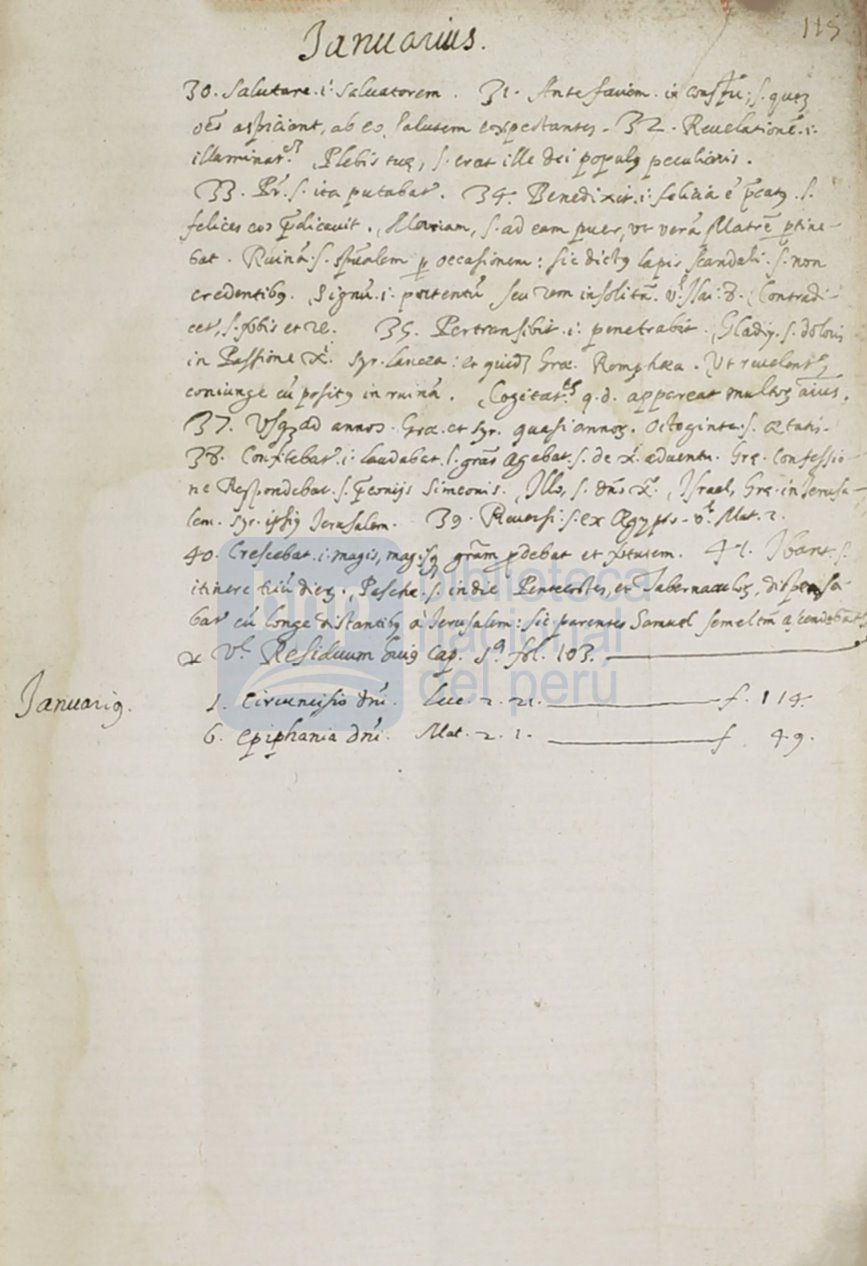 Januarius.
115
30. Salutare .i. Saluatorem. 31. Ante faciem. in conspũ; s. quẽ
oẽs aspiciant, ab eo, salutem expectantes. 32. Reuelationẽ .i.
illuminat. Plebis tuę, s. erat ille dei populꝰ peculiaris.
33. Pr̃. s. ita putabat. 34. Benedixit .i. felicia ẽ p̃catꝰ. s.
felices eos p̃dicauit. Mariam, s. ad eam puer, vt verã Matrẽ ꝑtine-
bat. Ruinã. s. spũalem ꝑ occasionem: sic dictꝰ lapis scandali. s. non
credentibꝰ. Signũ .i. portentũ seu rem insolitã. vͤ. Isai: 8. Contradi-
cet, s. et re. 35. Pertransibit .i. penetrabit. Gladiꝰ. s. doloris
in Passione X̃. Syr. Lancea: et quidẽ Gre. Romphæa. Vt reuelent,
coniunge cũ positꝰ in ruinã. Cogitat. q. d. appareat multoꝝ aĩus.
37. Vsqꝫ ad annos. Græ. et syr. quasi annoꝝ. octoginta. s. ætatis.
38. Confitebat .i. laudabat. s. gr̃as agebat. s. de X̃. aduentu. Gre. Confessio-
ne Respondebat. s. p̃conijs Simeonis. Illo, s. dn̄o X̃. Israel, Gre. in Jerusa-
lem. syr. ipsiꝰ Jerusalem. 39. Reuersi. s. ex Ægypto. vͤ. Mat. 2.
40. Crescebat .i. magis, magisqꝫ gr̃am ꝓdebat et 41. Ibant. s.
itinere triũ dieꝝ. Paschæ. s. in die Pentecostes, et Tabernaculoꝝ, dispensa-
bat cũ longe distantibꝰ a Jerusalem: sic parentes Samuel semel tm̃ ascendebant
vͤ. Residuum huiꝰ cap. fol. 103.
Januariꝰ.
1. Circuncisio dn̄i. Luc. 2. 21. f. 114.
6. Epiphania dn̄i. Mat. 2. 1. f. 49.
bnp biblioteca
nacional
del perú